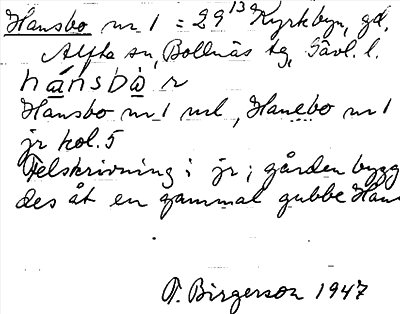 Hansbo nr 1 = 29¹³ᵃ Kyrkbyn, gd,
Alfta sn, Bollnäs tg, Gävl. l.
hánsbò r
Hansbo nr 1 ml, Hanebo nr 1
jr kol. 5
Felskrivning i jr; gården bygg
des åt en gammal gubbe Hans
T. Birgerson 1947